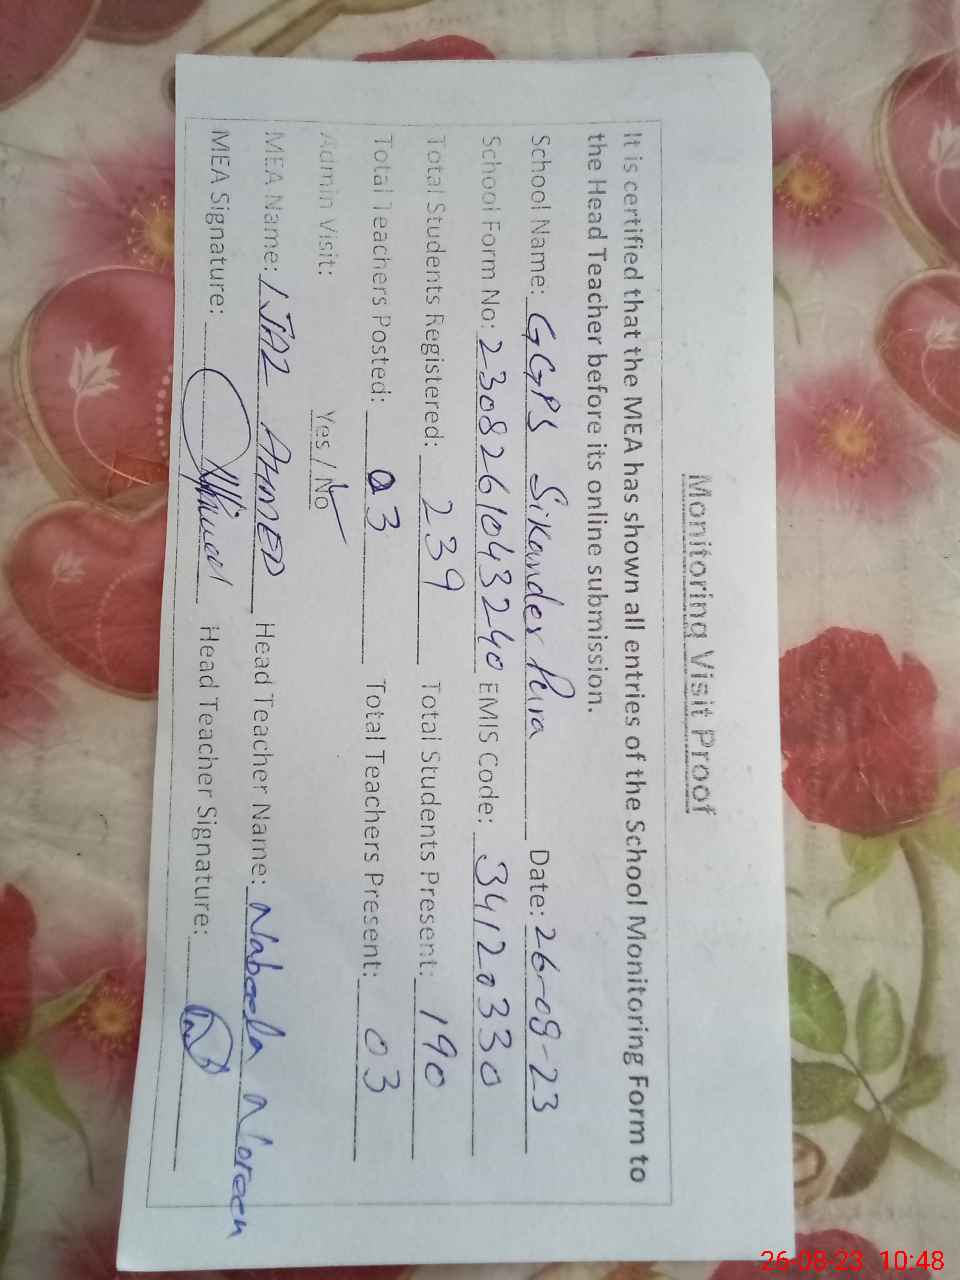 Monitoring Visit Proof
It is certified that the MEA has shown all entries of the School Monitoring Form to
the Head Teacher before its online submission.
School Name: GGPS Sikander Pura Date: 26-08-23
School Form No: 2308261043240 EMIS Code: 34120330
Total Students Registered: 239 Total Students Present: 190
Total Teachers Posted: 03 Total Teachers Present: 03
Admin Visit: Yes / No
MEA Name: IJAZ AHMED Head Teacher Name: Nabeela Noreen
MEA Signature: Head Teacher Signature:
26-08-23 10:48